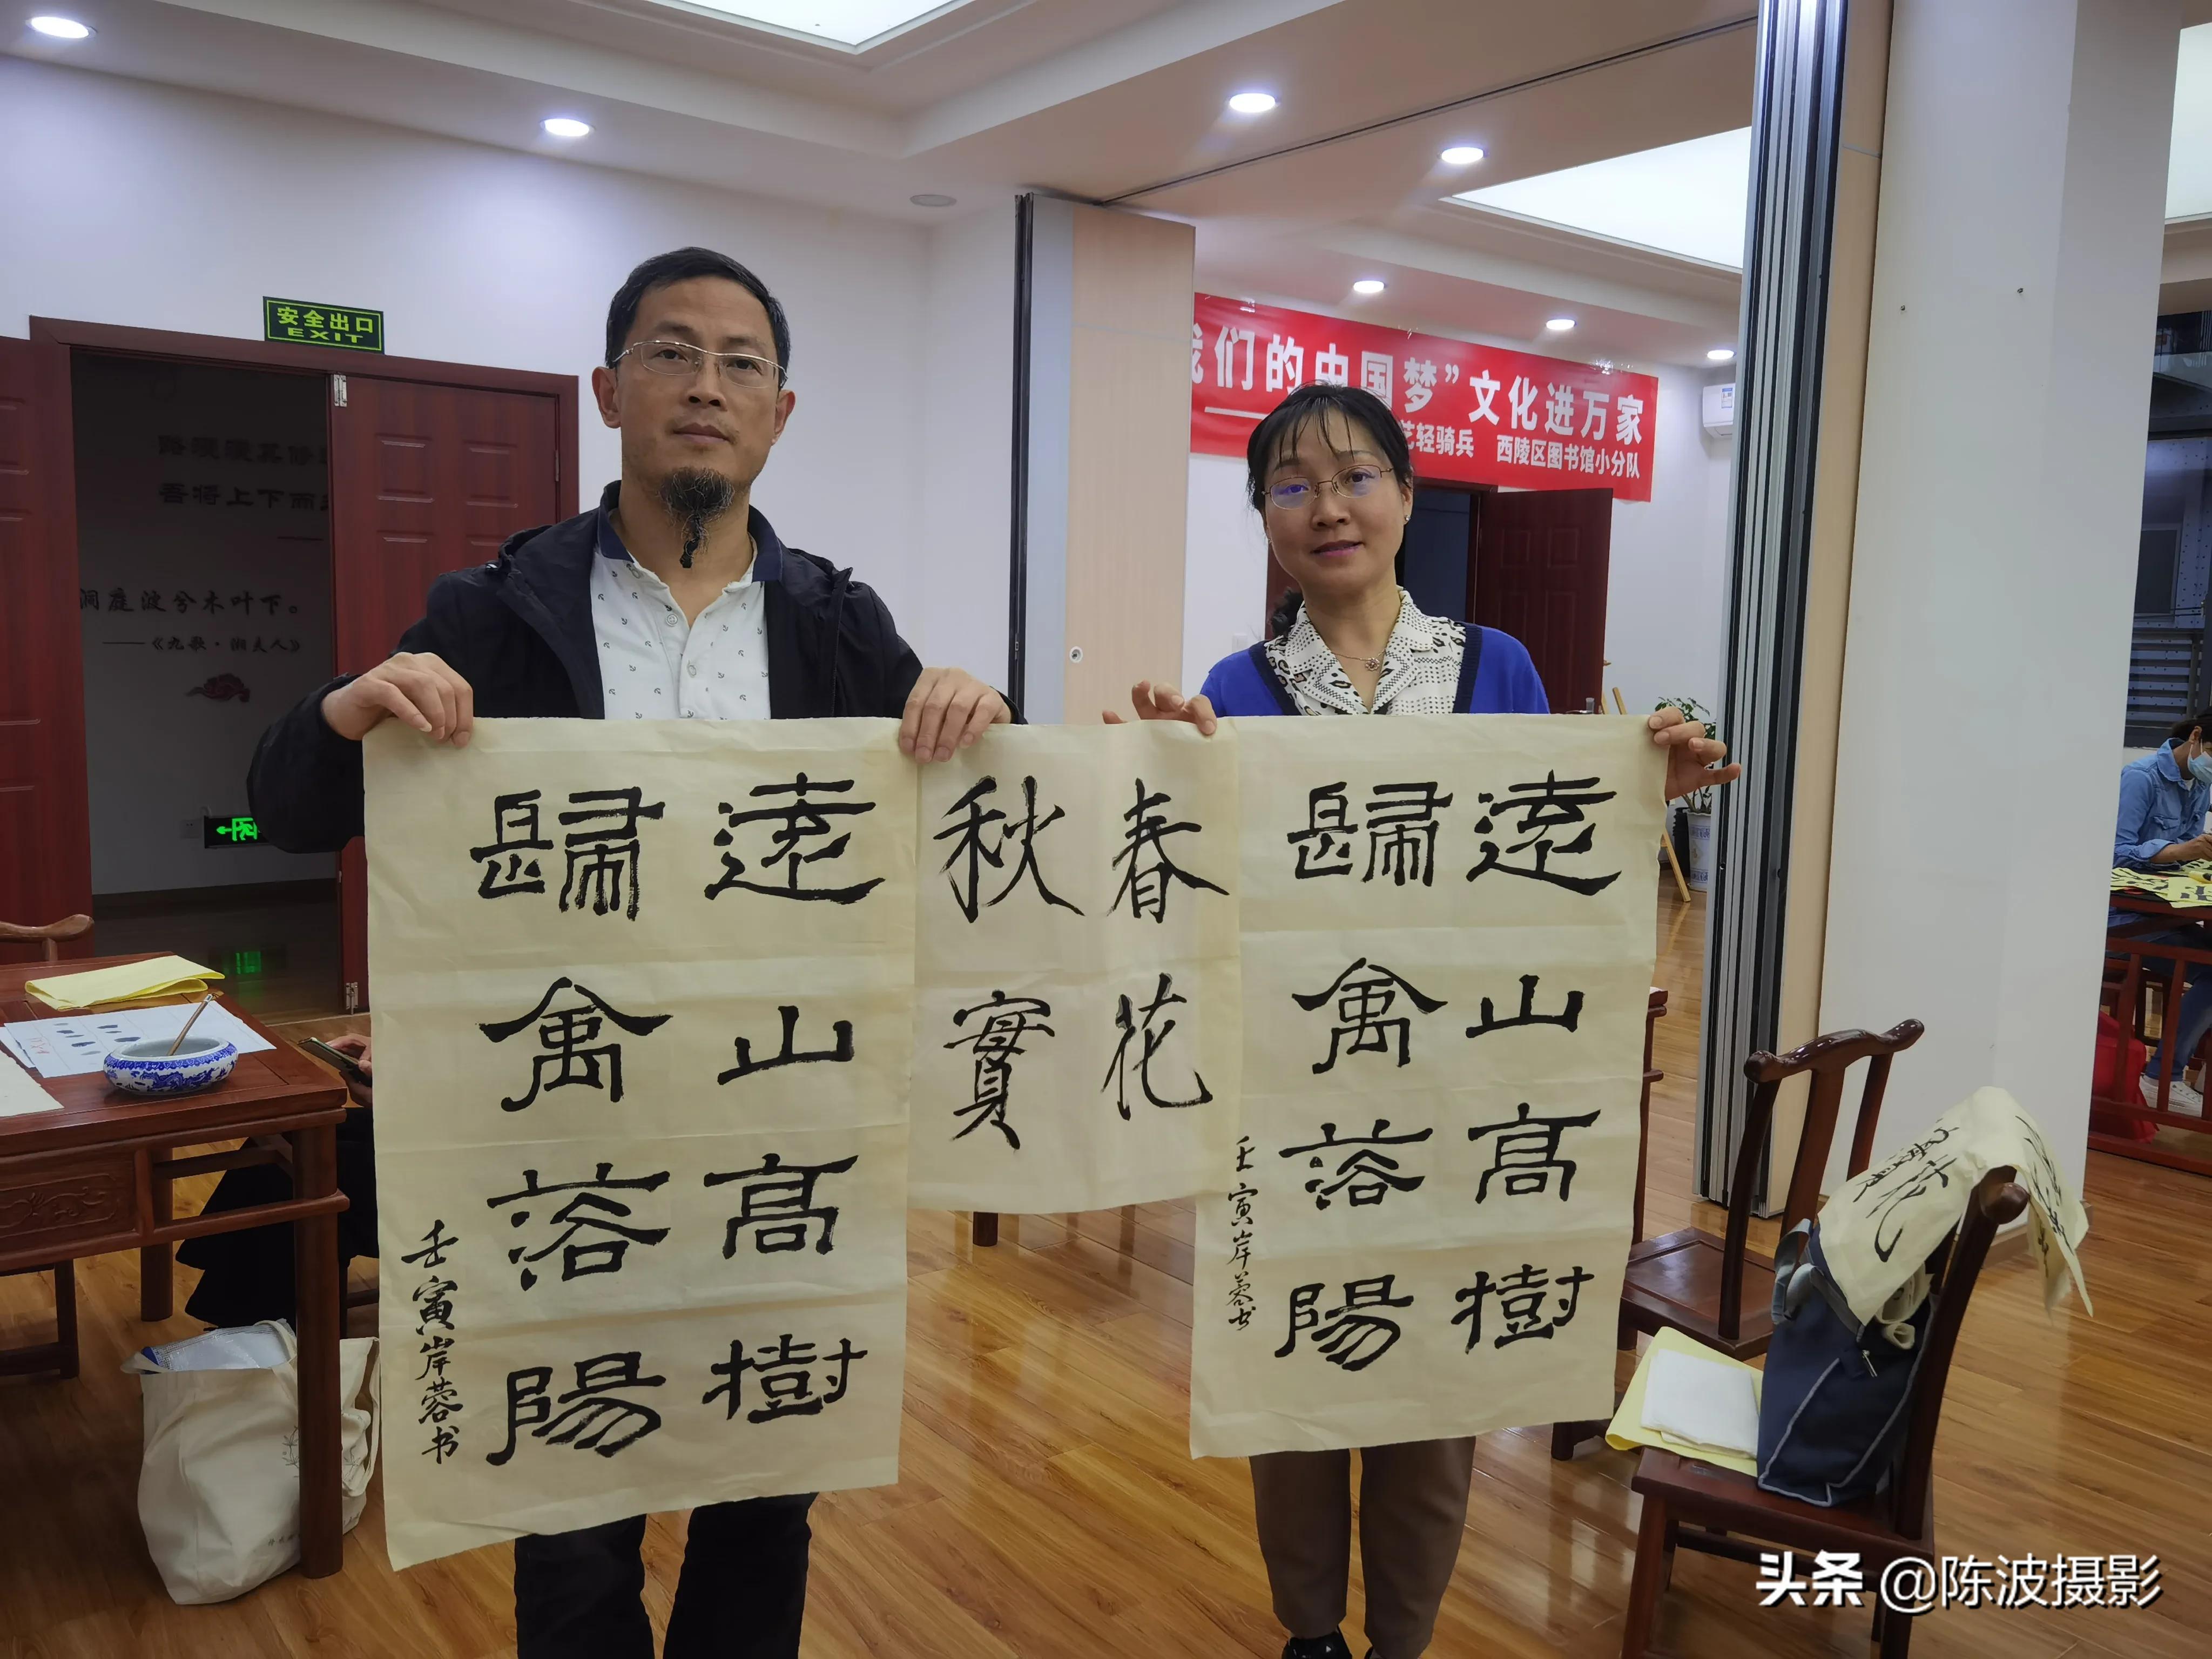 安全出口
EXIT
我们的中国梦”文化进万家
艺轻骑兵 西陵区图书馆小分队
路漫漫其修
吾将上下而
洞庭波兮木叶下。
——《九歌·湘夫人》
遠山高樹
歸禽落陽
壬寅岸蓉书
春花
秋實
遠山高樹
歸禽落陽
壬寅岸蓉书
头条 @陈波摄影